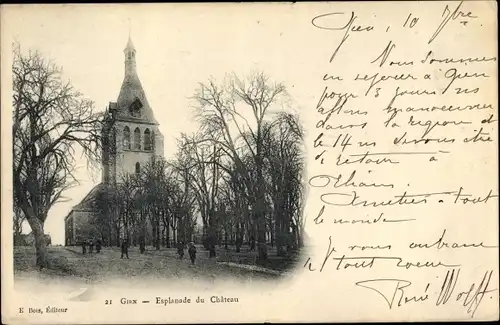 Gien, 10 7bre
Nous sommes
en repos à Gien
pour 3 jours et nous
allons manoeuvrer
dans la région
le 14 nous serons
de retour à
Amitiés à tout
le monde
Je vous embrasse
tout cœur
René Wolff
21 GIEN — Esplanade du Château
E Bois, Éditeur